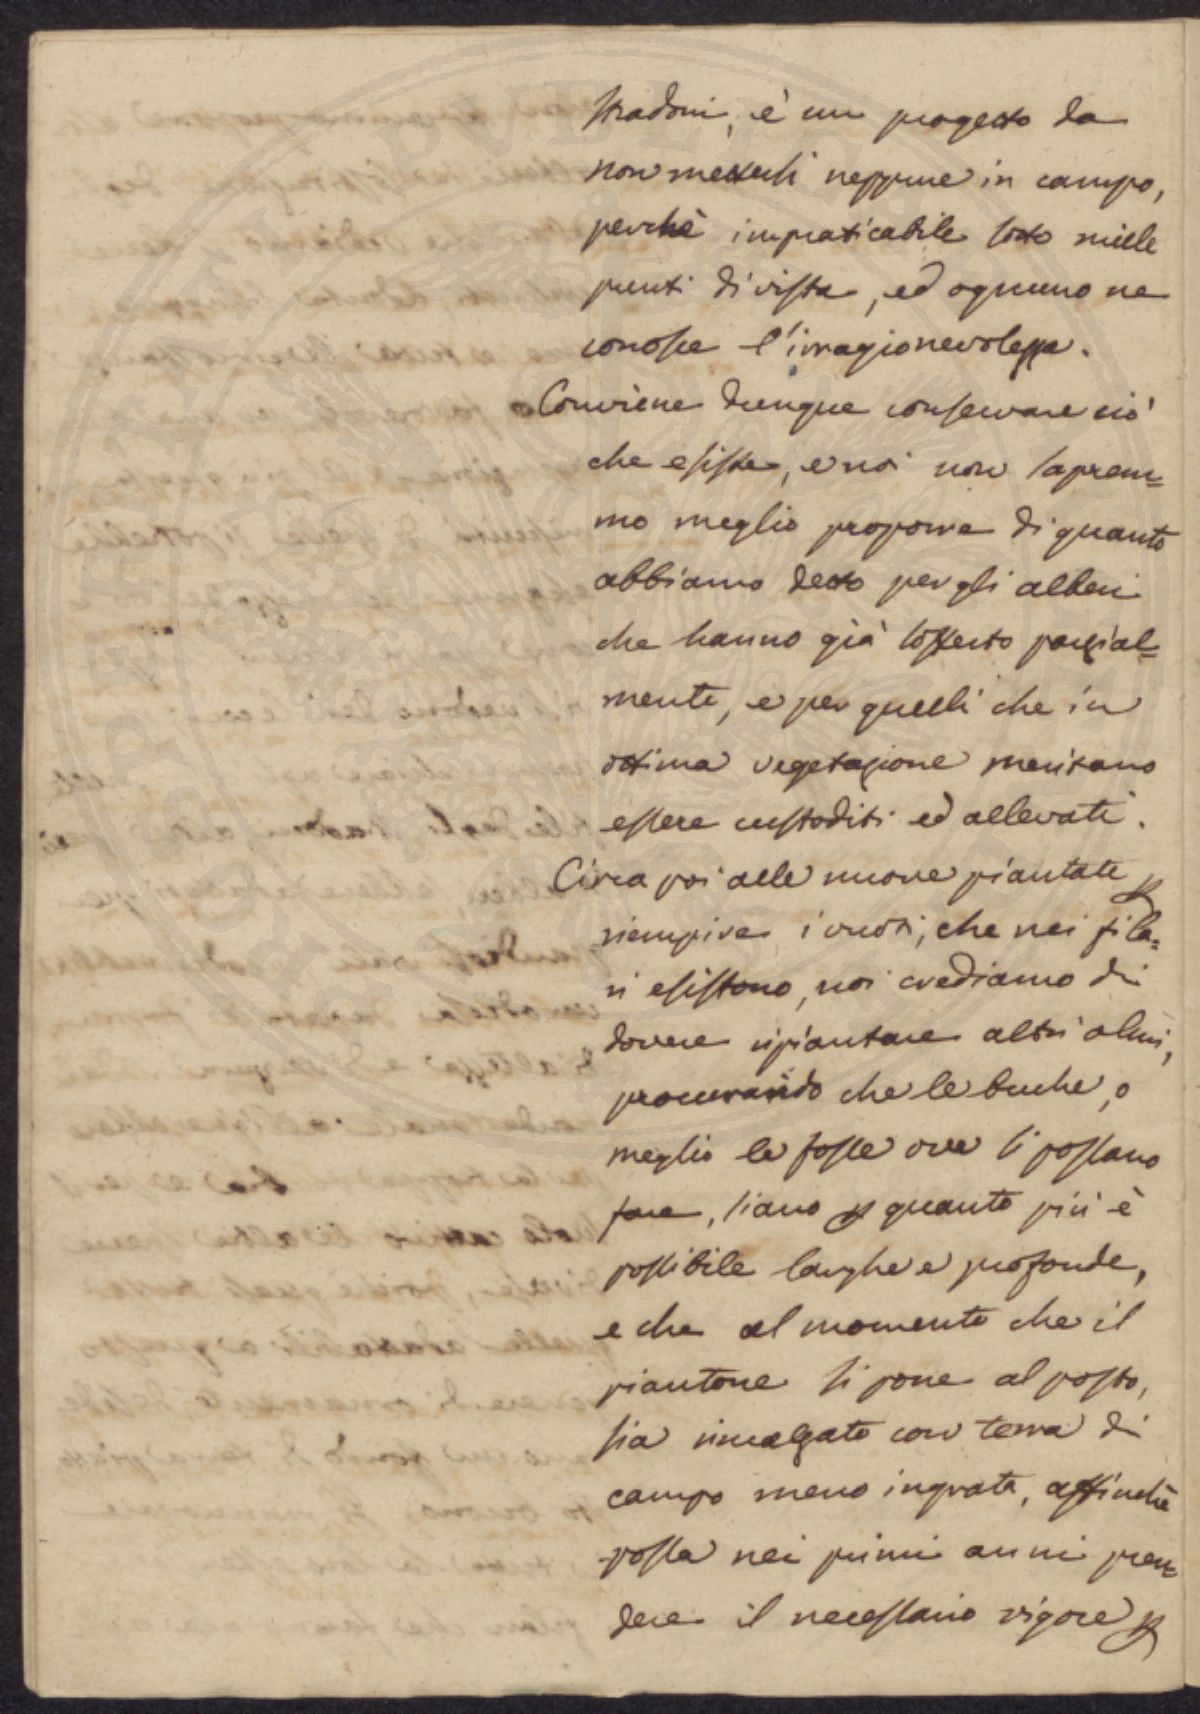 stradoni, è un progetto da
non mettersi neppure in campo,
perchè impraticabile sotto mille
punti di vista, ed ognuno ne
conosce l'irragionevolezza.
Conviene dunque conservare ciò
che esiste, e noi non saprem=
mo meglio proporre di quanto
abbiamo detto per gli alberi
che hanno già sofferto parzial=
mente, e per quelli che in
ottima vegetazione meritano
essere custoditi ed allevati.
Circa poi alle nuove piantate p
riempire i vuoti, che nei fila=
ri esistono, noi crediamo di
dovere ripiantare altri olmi,
procurando che le buche, o
meglio le fosse ove si possano
fare, siano p quanto più è
possibile larghe e profonde,
e che al momento che il
piantone si pone al posto,
sia rincalzato con terra di
campo meno ingrata, affinchè
possa nei primi anni pren=
dere il necessario vigore p